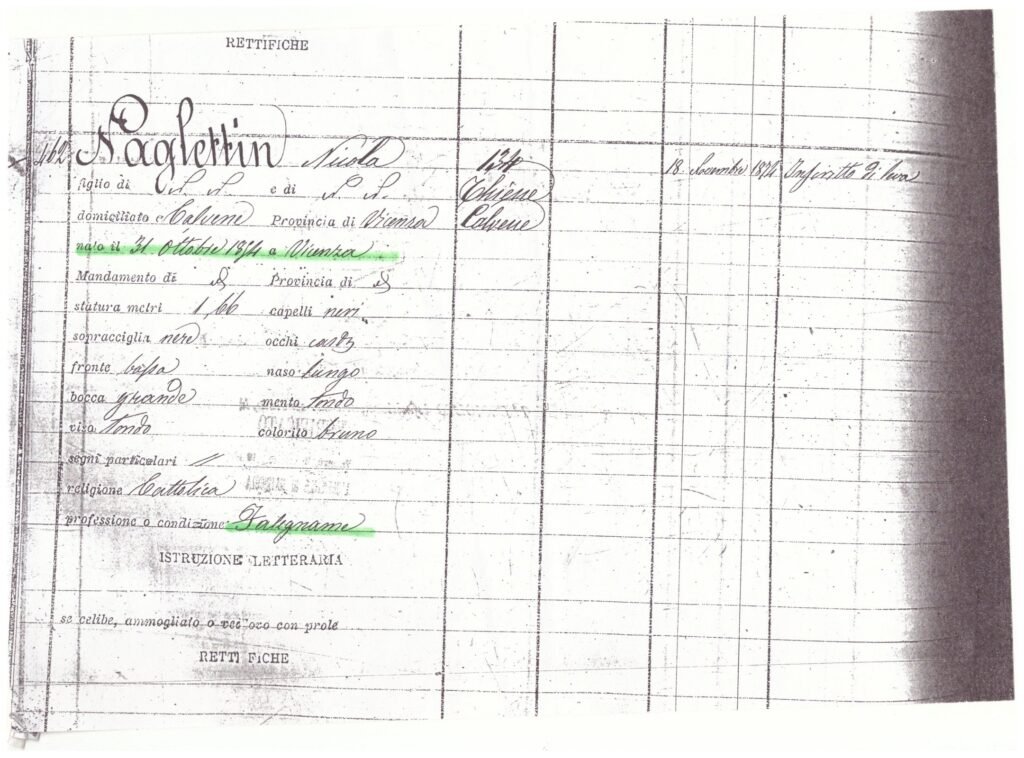 RETTIFICHE
462 Naglettin Nicola 134 18 Novembre 1874 Inscritto di leva
figlio di N. N. e di N. N. Thiene
domiciliato Calvene Provincia di Vicenza Calvene
nato il 31 Ottobre 1854 a Vicenza
Mandamento di Provincia di
statura metri 1,66 capelli neri
sopracciglia nere occhi
fronte bassa naso lungo
bocca grande mento tondo
viso tondo colorito bruno
segni particolari //
religione Cattolica
professione o condizione Falegname
ISTRUZIONE LETTERARIA
se celibe, ammogliato o vedovo con prole
RETTIFICHE